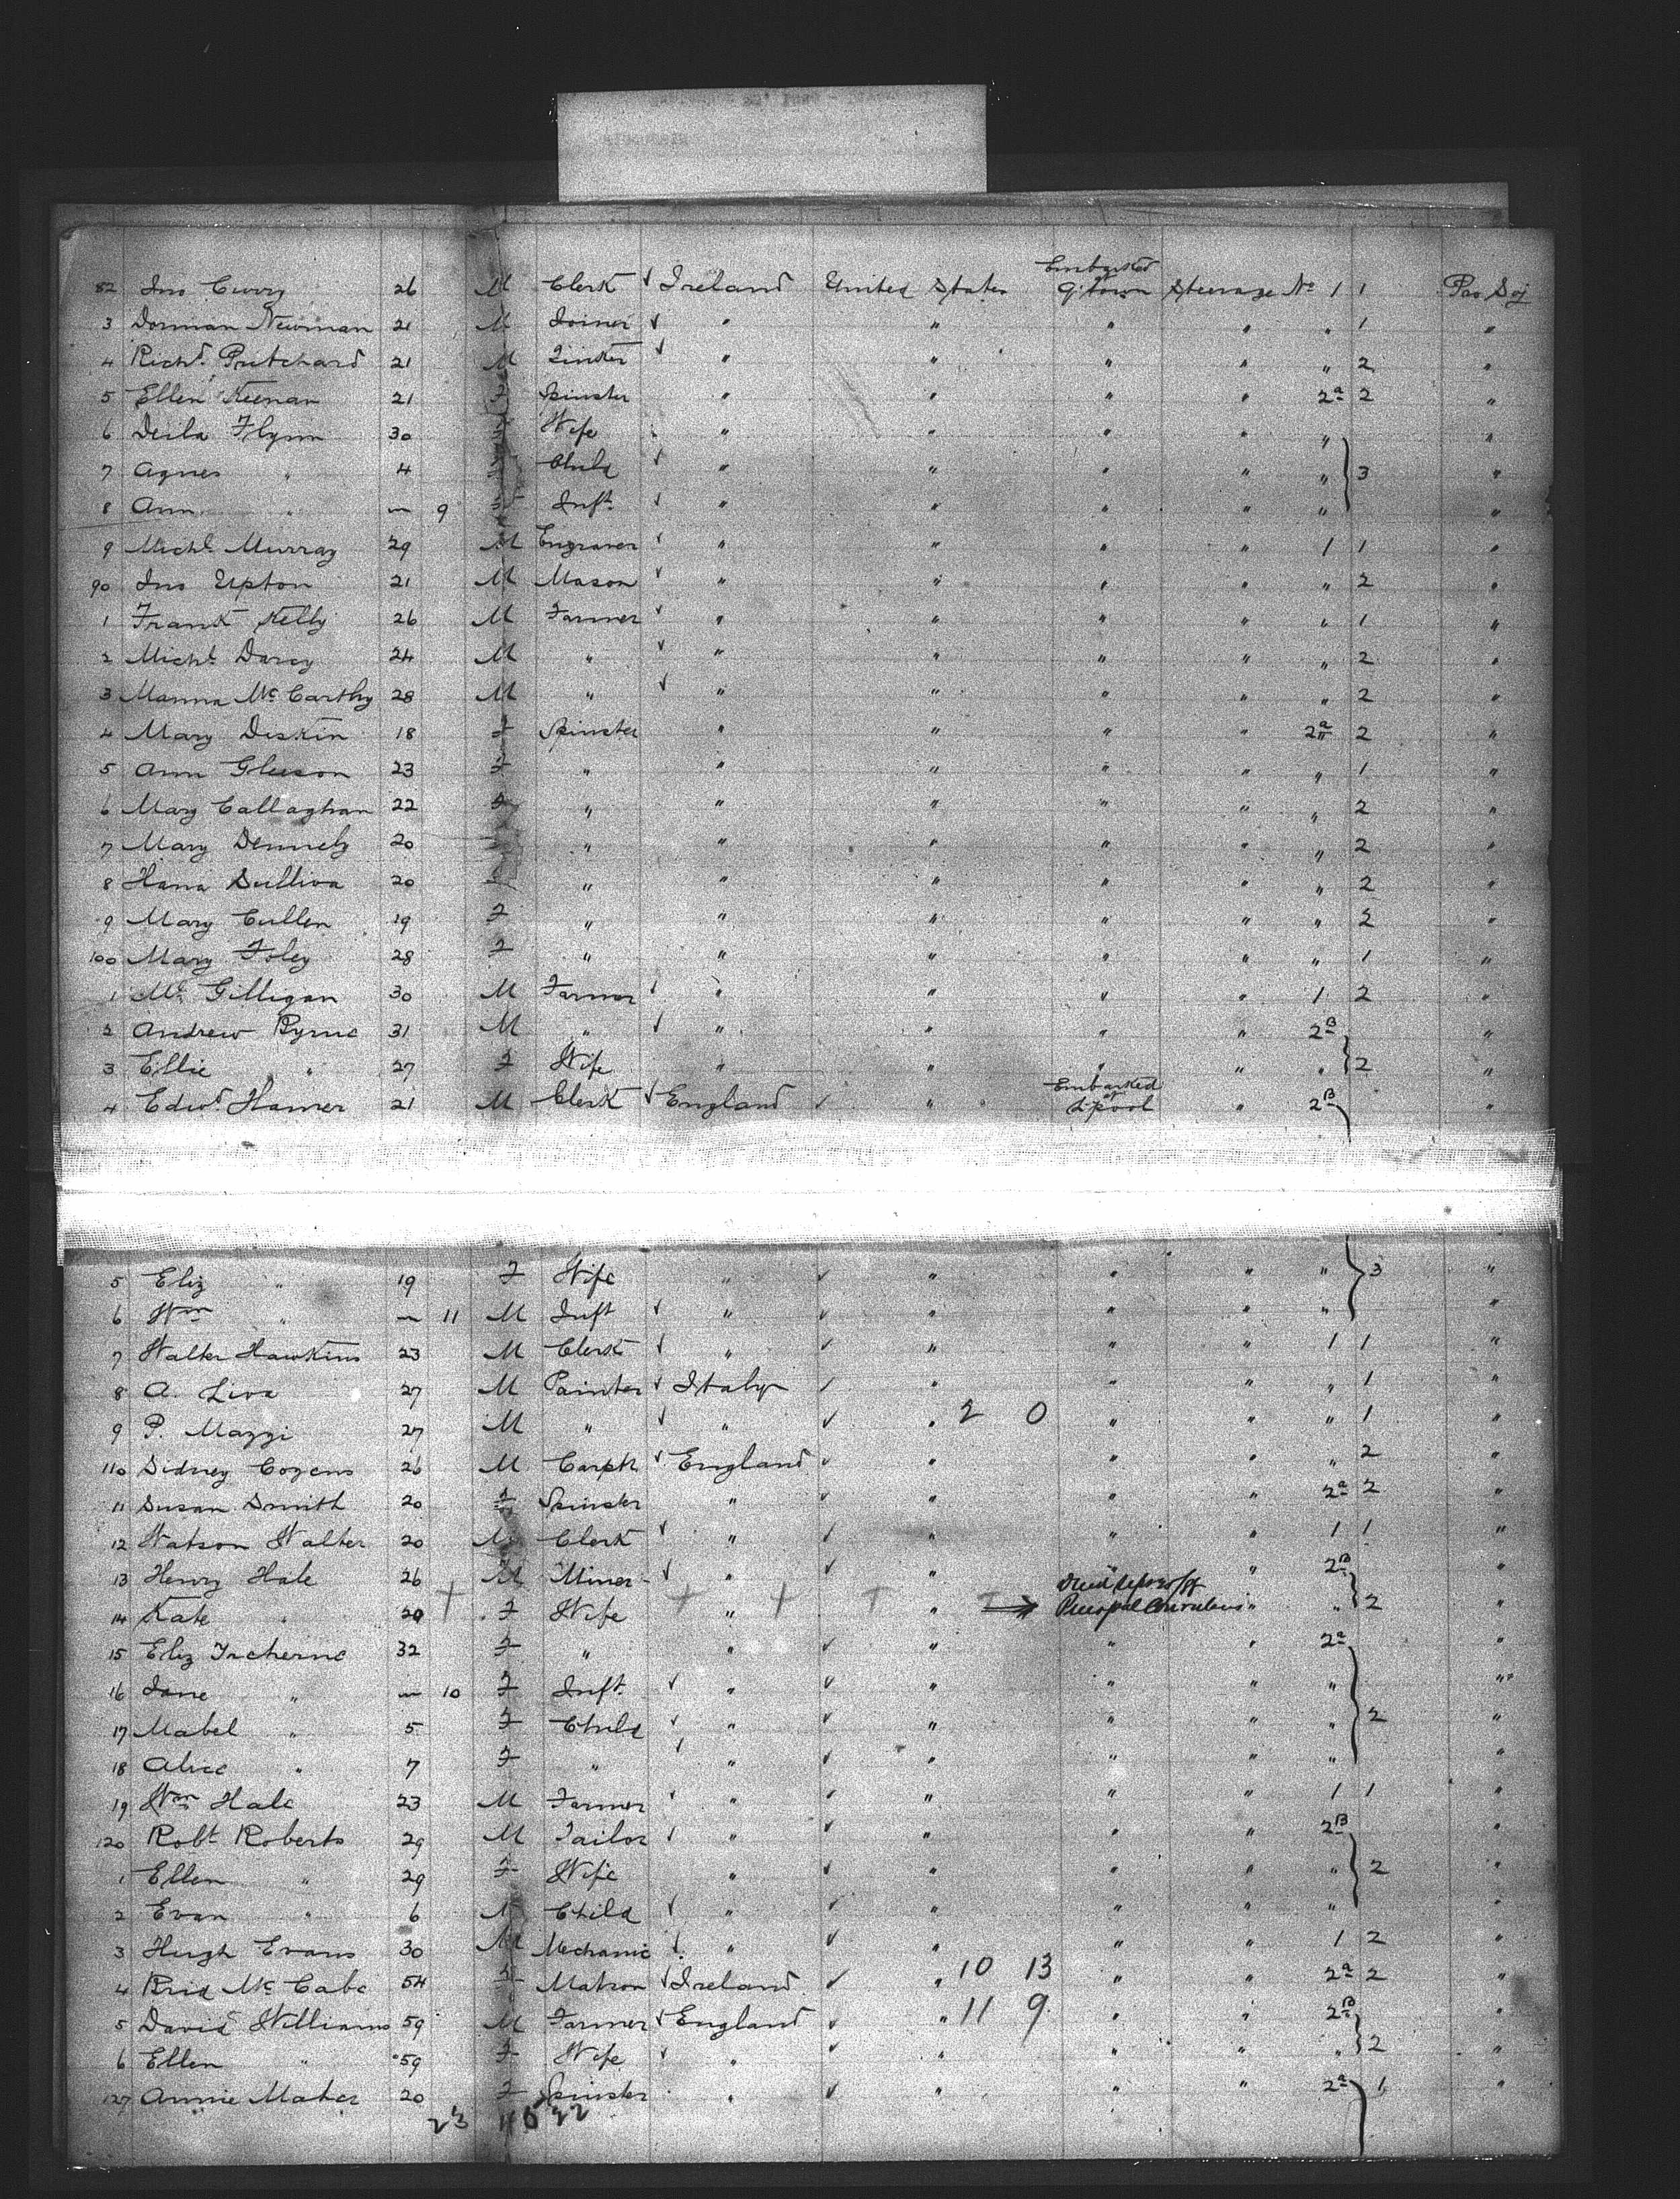 82 Jno Curry 26 M Clerk Ireland United States Embarked Q'town Steerage No 1 1 Pro Soj
3 Dorman Newman 21 M Joiner " " " " " 1 "
4 Richd. Pritchard 21 M " " " " " 2 "
5 Ellen Keenan 21 F Spinster " " " " 2a 2 "
6 Deila Flynn 30 Wife " " " " " "
7 Agnes " 4 Child " " " " " 3 "
8 Ann " 9 F Inft. " " " " " "
9 Michl Murray 29 M Engraver " " " " 1 1 "
90 Jno Upton 21 M Mason " " " " " 2 "
1 Frank Kelly 26 M Farmer " " " " " 1 "
2 Michl Darcy 24 M " " " " " " 2 "
3 Manna Mc Carthy 28 M " " " " " " 2 "
4 Mary Diskin 18 F Spinster " " " " 2a 2 "
5 Ann Gleeson 23 F " " " " " " 1 "
6 Mary Callaghan 22 F " " " " " " 2 "
7 Mary 20 " " " " " " 2 "
8 Hana Sulliva 20 " " " " " " 2 "
9 Mary Cullen 19 F " " " " " " 2 "
100 Mary Foley 28 F " " " " " " 1 "
1 Gilligan 30 M Farmer " " " " 1 2 "
2 Andrew Byrne 31 M " " " " " 2B "
3 Ellie " 27 F Wife " " " " " 2 "
4 Edwd. Hamer 21 M Clerk England " Embarked at L'pool " 2B "
5 Eliz " 19 F Wife " " " " " 3 "
6 Wm " 11 M Inft " " " " " "
7 Walter Hawkins 23 M Clerk " " " " 1 1 "
8 A. Liva 27 M Painter Italy " " " " 1 "
9 P. Mazzi 27 M " " " 2 0 " " " 1 "
110 Sidney Cozens 26 M Carptr England " " " " 2 "
11 Susan Smith 20 F Spinster " " " " 2a 2 "
12 Watson Walter 20 M Clerk " " " " 1 1 "
13 Henry Hale 26 M Miner " " " 2B "
14 Kate " 29 F Wife " " " " 2 "
15 Eliz Tracherne 32 F " " " " " 2a "
16 Jane " 10 F Inft. " " " " " "
17 Mabel " 5 F Child " " " " " 2 "
18 Alice " 7 F " " " " " " "
19 Wm Hale 23 M Farmer " " " " 1 1 "
120 Robt Roberts 29 M Tailor " " " " 2B "
1 Ellen " 29 F Wife " " " " " 2 "
2 Evan " 6 M Child " " " " " "
3 Hugh Evans 30 M Mechanic " " " " 1 2 "
4 Brid Mc Cabe 54 F Matron Ireland " 10 13 " " 2a 2 "
5 David Williams 59 M Farmer England " 11 9 " " 2B "
6 Ellen " 59 F Wife " " " " " 2 "
127 Annie Maher 20 F Spinster " " " " 2a 1 "
23